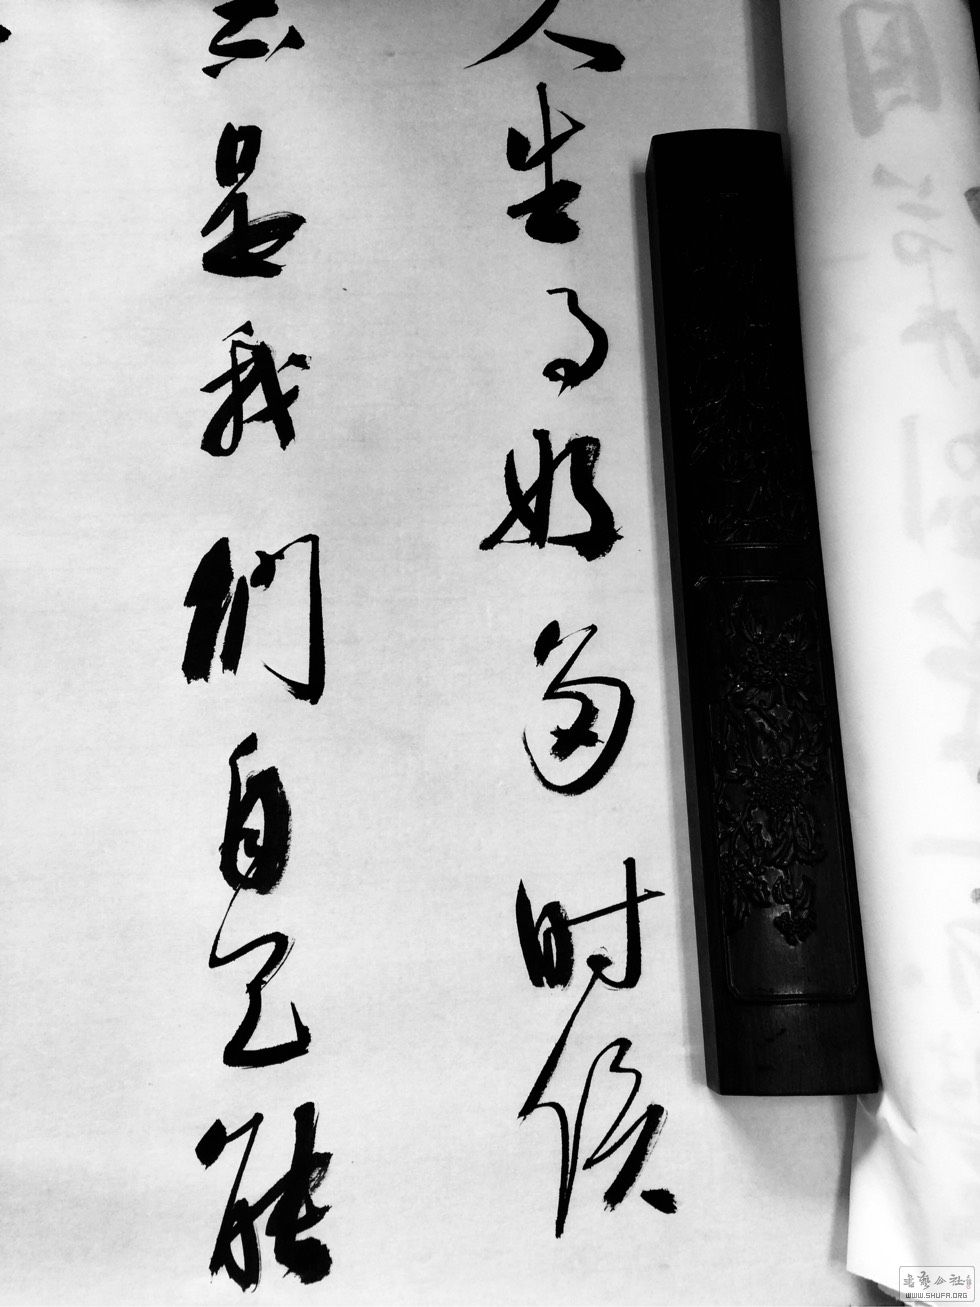 人生有好多时候
不是我们自己能
書藝公社
WWW.SHUFA.ORG